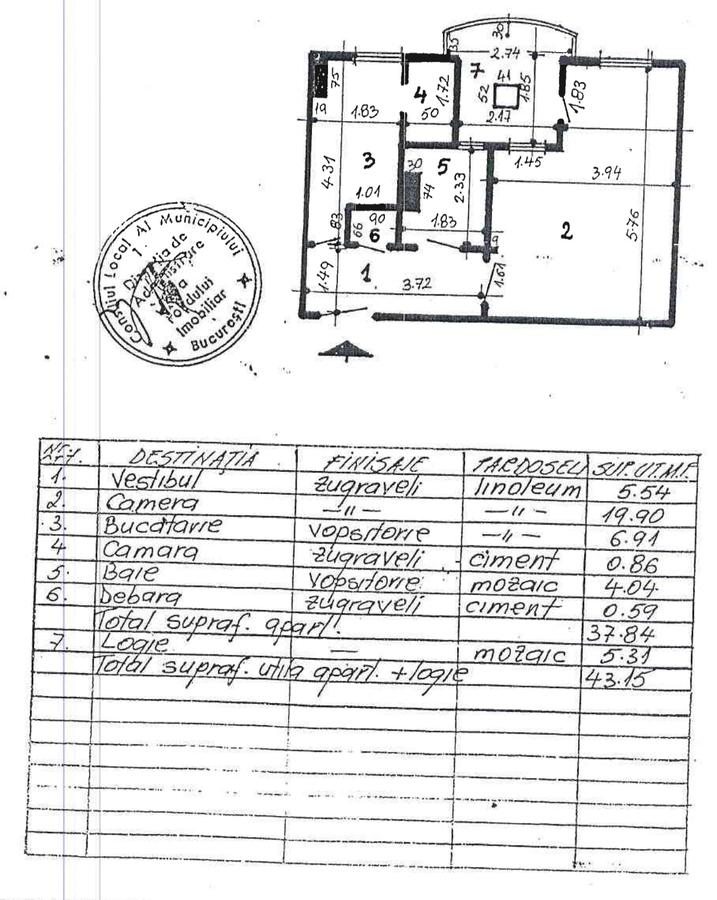 30
35
2.74
7
41
52
1.85
2.17
75
19
1.83
4
1.72
50
1.83
3
4.31
30
5
74
2.33
1.45
3.94
1.01
83
66
90
6
1.83
2
5.76
1.49
1
3.72
1.61
Consiliul Local Al Municipiului
Bucuresti
1.
Administrare
Fondului
Imobiliar
NR. CRT. DESTINAȚIA FINISAJE PARDOSELI SUP.UT.M.P.
1. Vestibul zugraveli linoleum 5.54
2. Camera —"— —"— 19.90
3. Bucătarie vopsitorie —"— 6.91
4 Camara zugraveli ciment 0.86
5. Baie vopsitorie mozaic 4.04
6. Debara zugraveli ciment 0.59
Total supraf. apart. 37.84
7. Logie — mozaic 5.31
Total supraf. utila apart. + logie 43.15